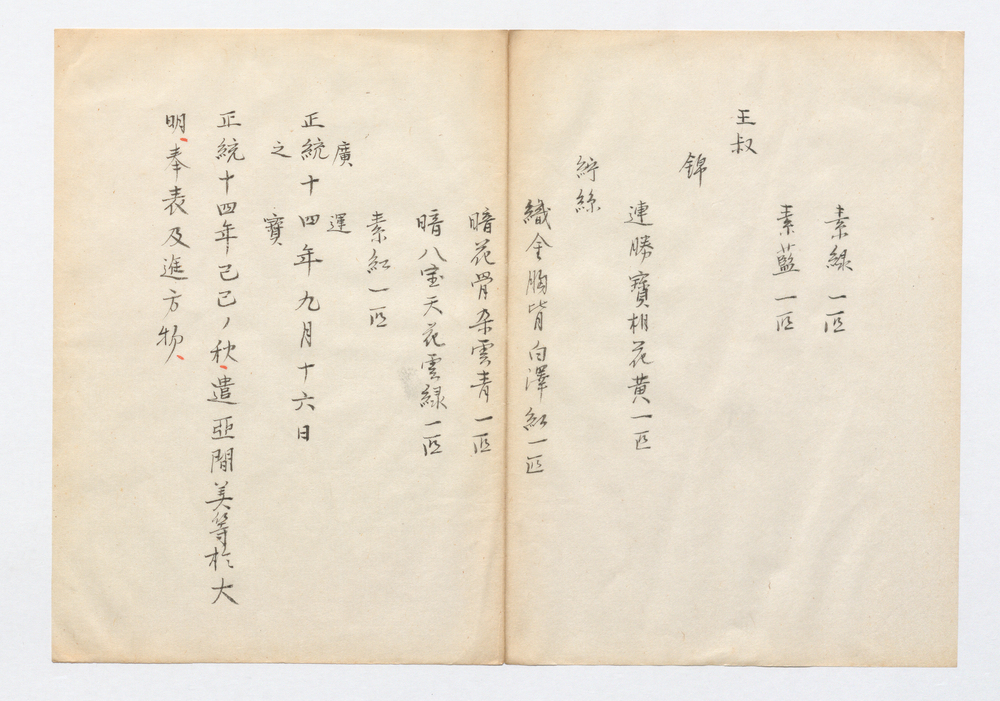 素緑一匹
素藍一匹
王叔
錦
連勝寶相花黄一匹
紵絲
織金胸背白澤紅一匹
暗花骨朶雲青一匹
暗八宝天花雲緑一匹
素紅一匹
廣運
正統十四年九月十六日
之寶
正統十四年己巳ノ秋、遣亞間美等於大
明、奉表及進方物、